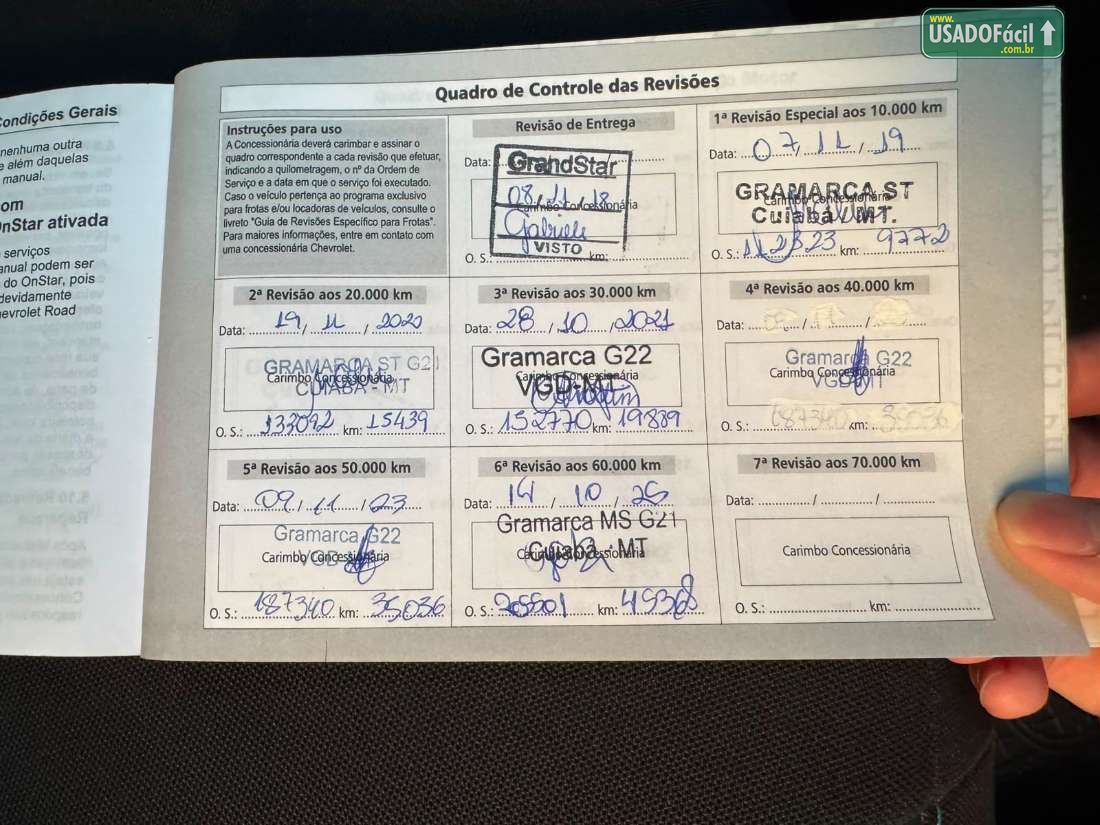 www.
USADOFácil
.com.br
Condições Gerais
nenhuma outra
e além daquelas
manual.
om
OnStar ativada
serviços
anual podem ser
do OnStar, pois
devidamente
hevrolet Road
Quadro de Controle das Revisões
Instruções para uso
A Concessionária deverá carimbar e assinar o
quadro correspondente a cada revisão que efetuar,
indicando a quilometragem, o nº da Ordem de
Serviço e a data em que o serviço foi executado.
Caso o veículo pertença ao programa exclusivo
para frotas e/ou locadoras de veículos, consulte o
livreto "Guia de Revisões Específico para Frotas".
Para maiores informações, entre em contato com
uma concessionária Chevrolet.
Revisão de Entrega
Data:
GrandStar
08/11/18
Carimbo Concessionária
Gabriele
VISTO
O. S.: km:
1ª Revisão Especial aos 10.000 km
Data: 07/11/19
GRAMARCA ST
Carimbo Concessionária
Cuiabá MT.
O. S.: 112823 km: 9772
2ª Revisão aos 20.000 km
Data: 19/11/2020
GRAMARCA ST G21
Carimbo Concessionária
CUIABÁ - MT
O. S.: 133092 km: 15439
3ª Revisão aos 30.000 km
Data: 28/10/2021
Gramarca G22
Carimbo Concessionária
VGD-MT
O. S.: 152770 km: 19889
4ª Revisão aos 40.000 km
Data: / /
Gramarca G22
Carimbo Concessionária
VGD MT
O. S.: 187340 km: 35036
5ª Revisão aos 50.000 km
Data: 09/11/23
Gramarca G22
Carimbo Concessionária
O. S.: 187340 km: 35036
6ª Revisão aos 60.000 km
Data: 14/10/25
Gramarca MS G21
Carimbo Concessionária
Cuiabá - MT
O. S.: 205501 km: 45368
7ª Revisão aos 70.000 km
Data: / /
Carimbo Concessionária
O. S.: km: